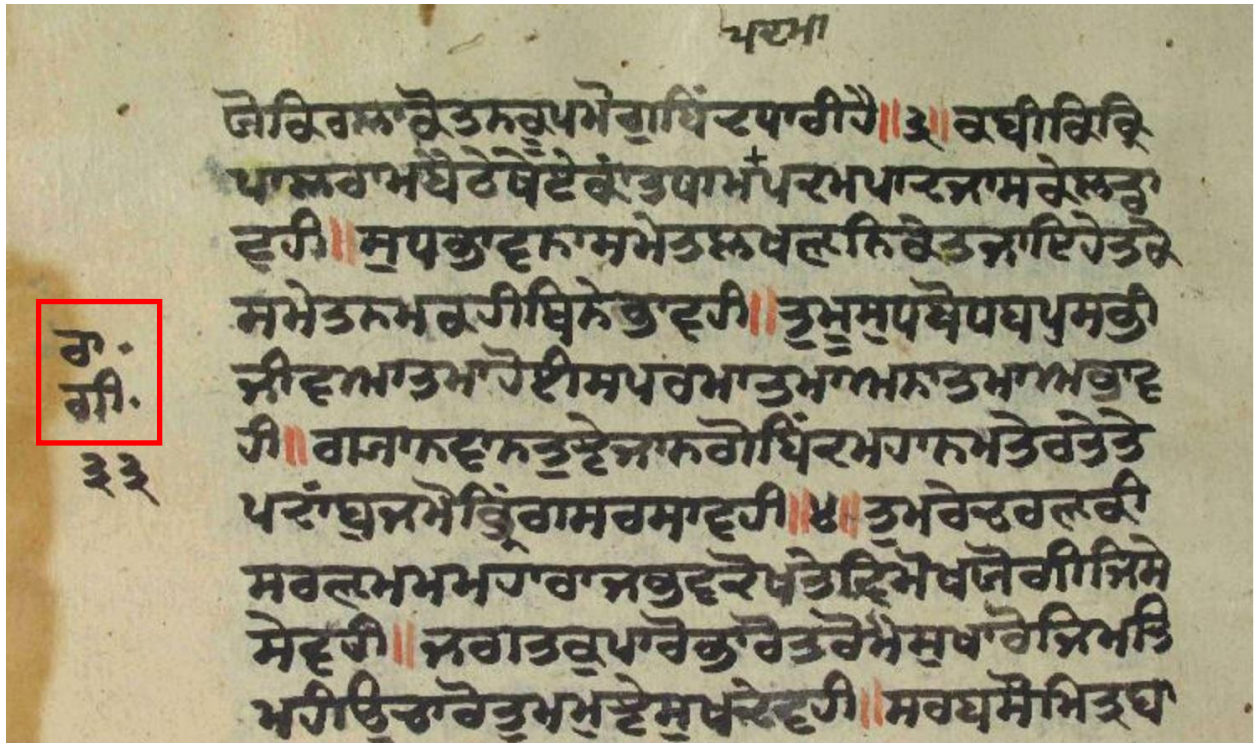 ਪਦਮਾ
ਜੋਕਿਰਲਾਕੋਤਨਰੂਪਮੈਗੁਬਿੰਦਧਾਰੀਹੈ॥੩॥ਕਬੀਕਿਕ੍ਰਿ
ਪਾਲਰਾਮਬੈਠੇਥੇਏਕਾਂਤਧਾਮਪਰਮਪਾਦਜਾਸਕੇਲਤ੍ਵਾ
ਵਹੀ॥ਸੁਧਭਾਵਨਾਸਮੇਤਲਖਣਨਿਕੇਤਜਾਇਹੇਤਕੇ
ਸਮੇਤਨਮਕਰੀਬਿਨੈਭਾਵਹੀ॥ਤੁਮੂਸੁਧਬੋਧਬਪੁਸਭੀ
ਜੀਵਆਤਮਾਹੋਈਸਪਰਮਾਤਮਾਅਨਾਤਮਾਅਭਾਵ
ਹੀ॥ਗਜਾਨਵਾਨਤੁਝੇਜਾਨਗੋਬਿੰਦਮਹਾਨਮਤੇਰਤੇਤੇ
ਪਦਾਂਬੁਜਮੈਭ੍ਰਿੰਗਸਰਸਾਵਹੀ॥੪॥ਤੁਮਰੇਚਰਣਕੀ
ਰਾ·
ਗੀ·
੩੩
ਸਰਣਮਮਮਹਾਰਾਜਭੁਵਦੋਖਤੇਦ੍ਰਿਮੋਖਜੋਗੀਜਿਸੇ
ਸੇਵਹੀ॥ਜਗਤਕੂਪਾਰੋਭਾਰੋਤਰੋਮੈਸੁਖਾਰੋਜਿਮਤਿ
ਮਹੀਉਚਾਰੋਤੁਮਮੁਝੇਸੁਖਦੇਵਹੀ॥ਸਰਬਸੌਮਿਤ੍ਰਬਾ